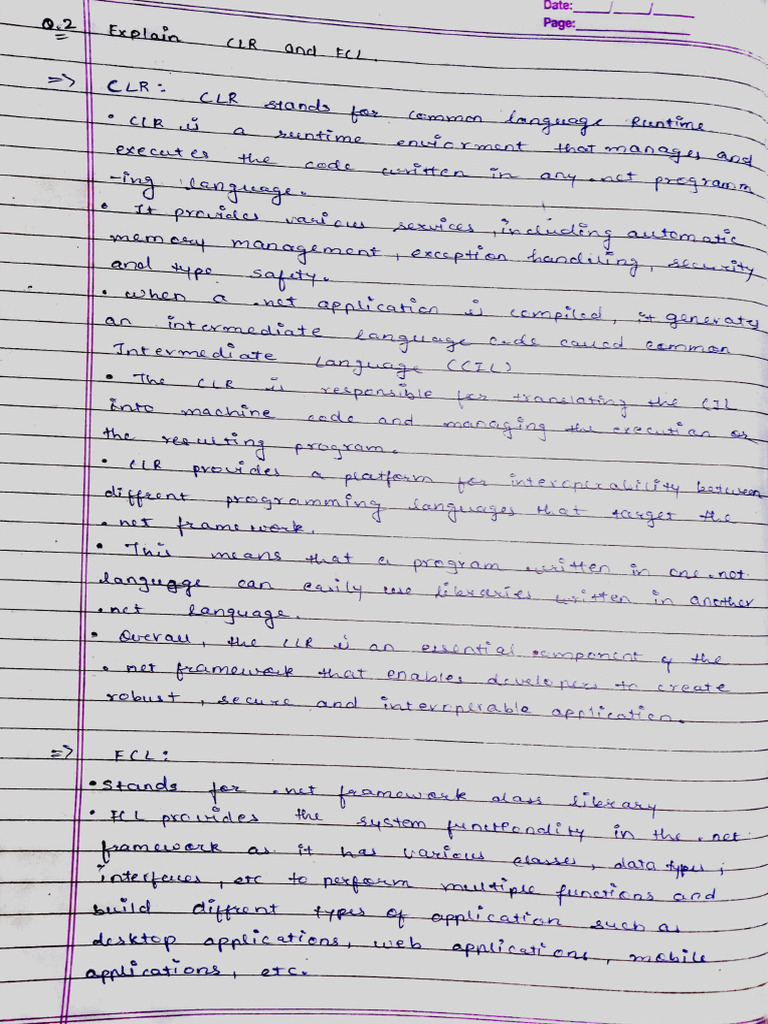 Date:___/___/___
Page:___________
Q.2 Explain CLR and FCL.
=> CLR: CLR stands for common language Runtime
• CLR is a runtime enviorment that manages and
executes the code written in any .net programm
-ing language.
• It provides various services, including automatic
memory management, exception handiling, security
and type safety.
• when a .net application is compiled, it generates
an intermediate language code caued common
Intermediate language (CIL)
• The CLR is responsible for translating the CIL
into machine code and managing the execution of
the resulting program.
• CLR provides a platform for interoperability between
diffrent programming languages that target the
.net framework.
• This means that a program written in one .net
language can easily use libraries written in another
.net language.
• Overall, the CLR is an essential component of the
.net framework that enables developers to create
robust, secure and interoperable application.
=> FCL:
• stands for .net framework class library
• FCL provides the system functiondity in the .net
framework as it has various classes, data types,
interfaces, etc to perform multiple functions and
build diffrent types of application such as
desktop applications, web applications, mobile
applications, etc.